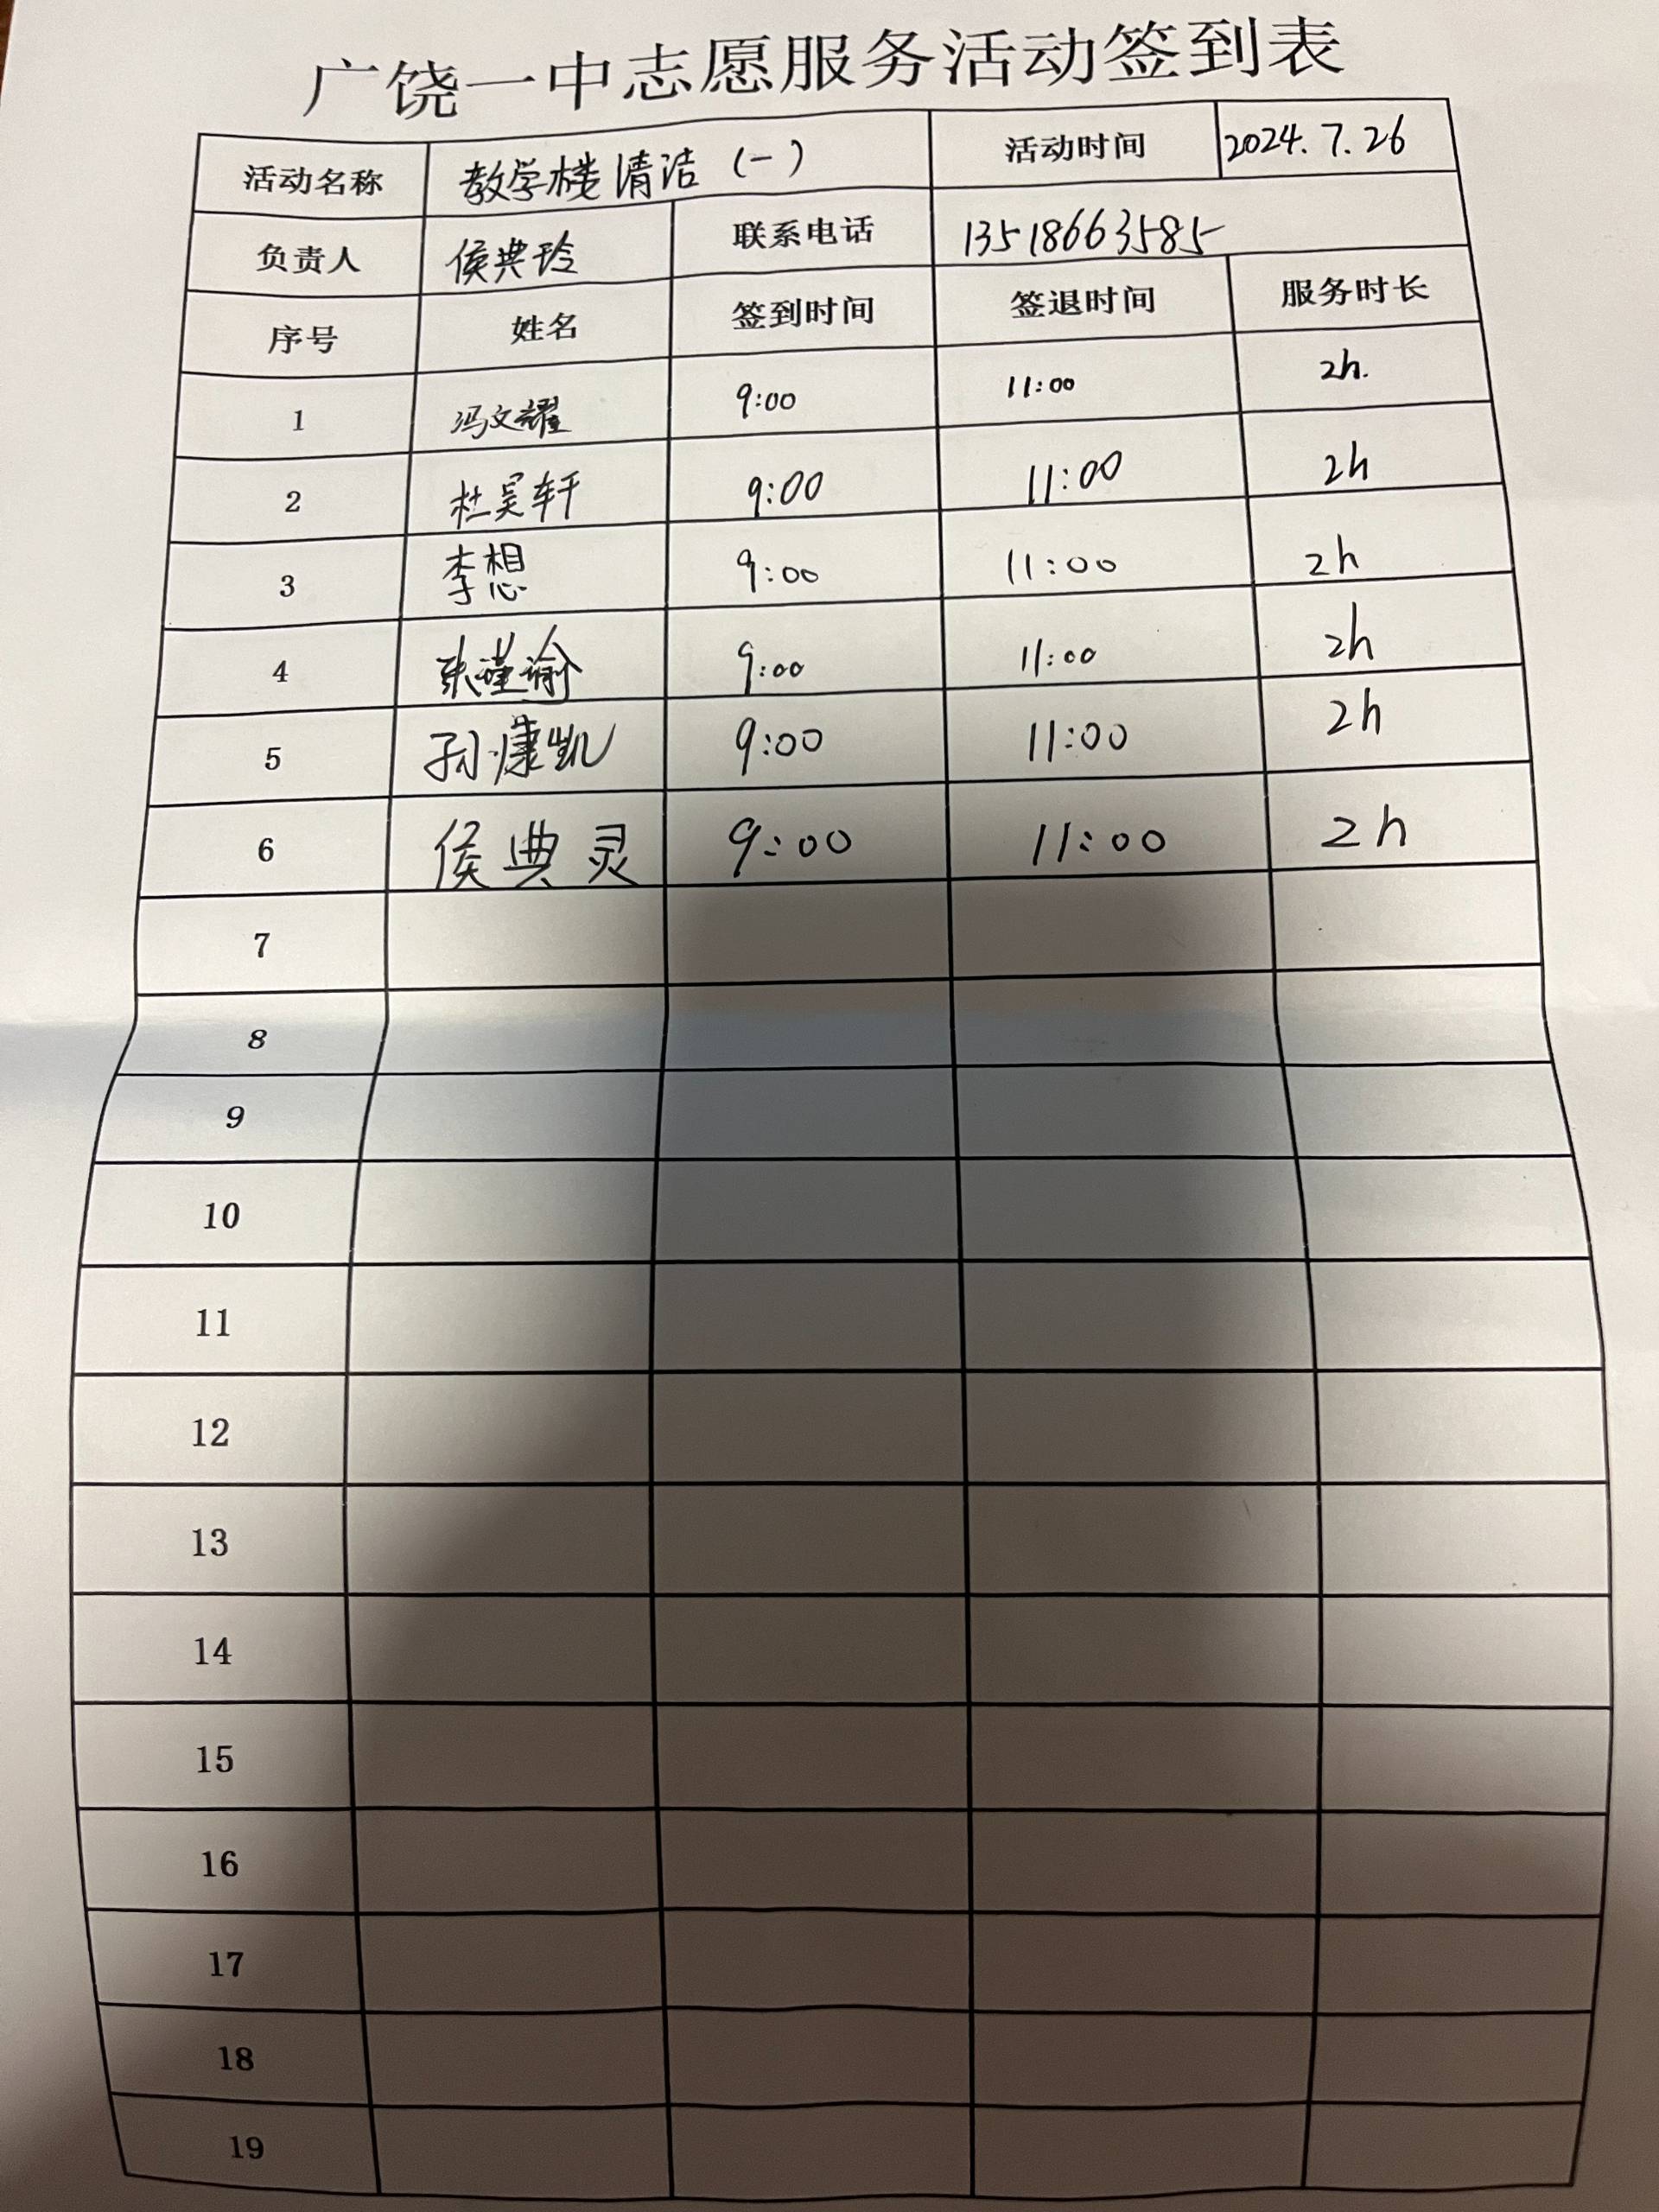 广饶一中志愿服务活动签到表
活动名称 教学楼清洁（一） 活动时间 2024.7.26
负责人 侯典玲 联系电话 13518663585
序号 姓名 签到时间 签退时间 服务时长
1 冯文耀 9:00 11:00 2h.
2 杜昊轩 9:00 11:00 2h
3 李想 9:00 11:00 2h
4 张瑾瑜 9:00 11:00 2h
5 孙康凯 9:00 11:00 2h
6 侯典灵 9:00 11:00 2h
7
8
9
10
11
12
13
14
15
16
17
18
19